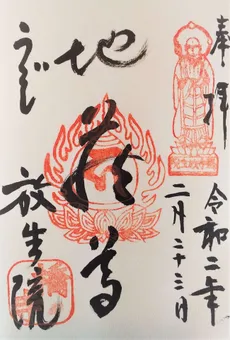 奉拝
令和二年
二月二十三日
地蔵尊
うぢ
放生院